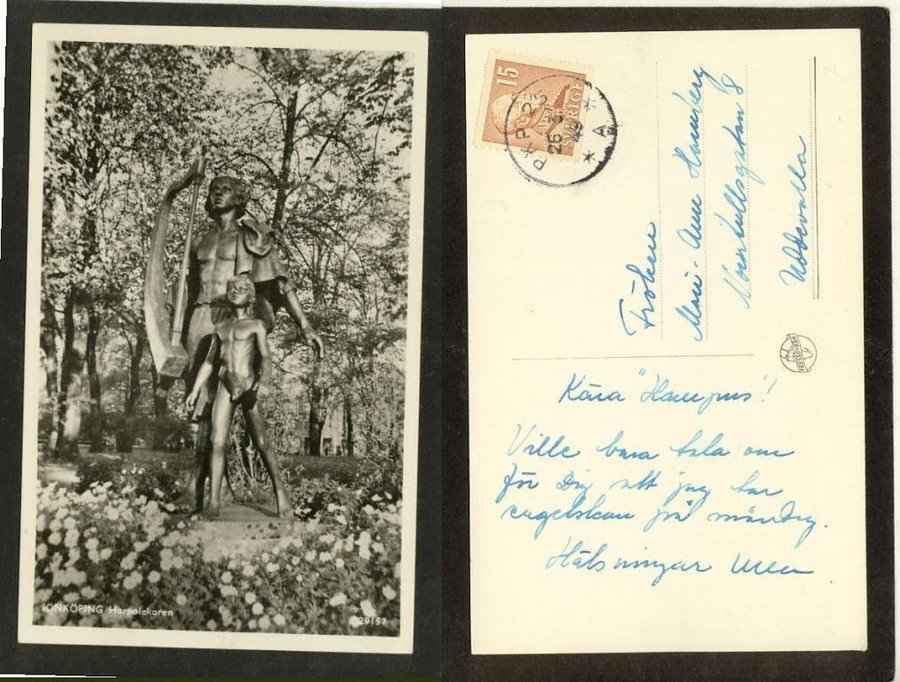 JÖNKÖPING Harpolekaren
29157
15
SVERIGE
PKP 2
26
* A *
Fröken
Mari-Ann Hamberg
8
Uddevalla
Kära "Hampus"!
Ville bara tala om
för Dig att jag tar
engelskan på måndag.
Hälsningar